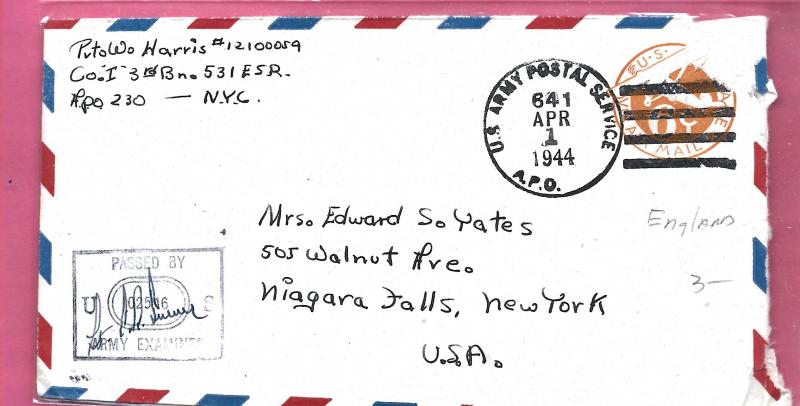 Pvt. Wo Harris #12100059
Co. "I" 3rd Bn. 531 ESR.
Apo 230 — N.Y.C.
U.S. ARMY POSTAL SERVICE
641
APR
1
1944
A.P.O.
U.S.
6¢
AIR MAIL
Mrs. Edward S. Yates
505 Walnut Ave.
Niagara Falls, New York
U.S.A.
England
3—
PASSED BY
U 02516 S
ARMY EXAMINER